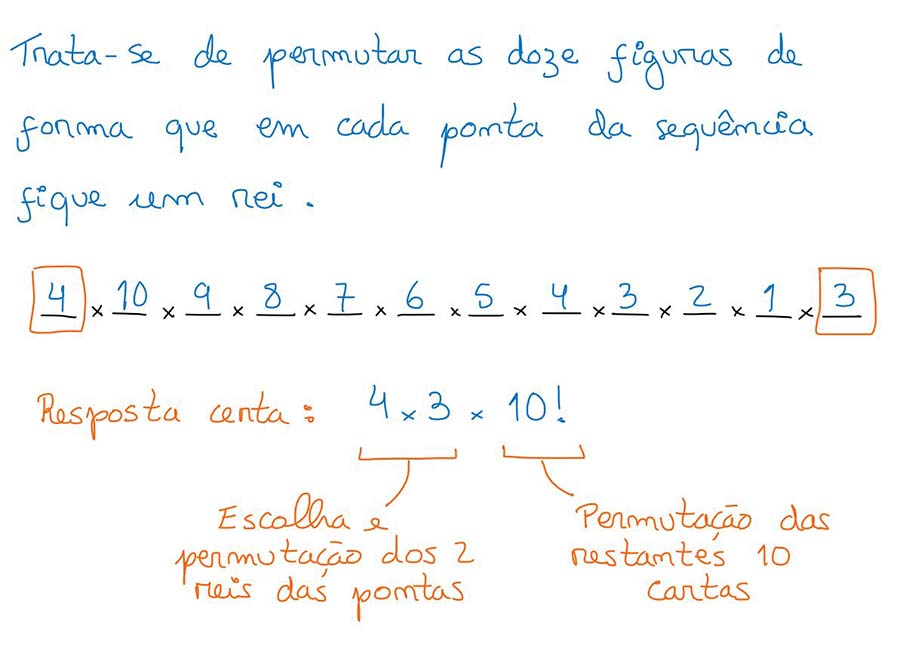 Trata-se de permutar as doze figuras de
forma que em cada ponta da sequência
fique um rei.
4 × 10 × 9 × 8 × 7 × 6 × 5 × 4 × 3 × 2 × 1 × 3
Resposta certa: 4 × 3 × 10!
Escolha e
permutação dos 2
reis das pontas
Permutação das
restantes 10
cartas